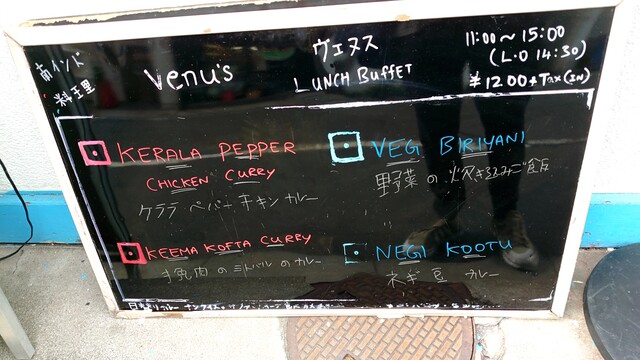 南インド
料理
Venu's
ヴェヌス
LUNCH BUFFET
11:00~15:00
(L.O 14:30)
¥1200+Tax(IN)
KERALA PEPPER
CHICKEN CURRY
ケララ ペパー チキン カレー
VEG BIRIYANI
野菜の炊き込みご飯
KEEMA KOFTA CURRY
肉のミートバルのカレー
NEGI KOOTU
ネギ豆カレー